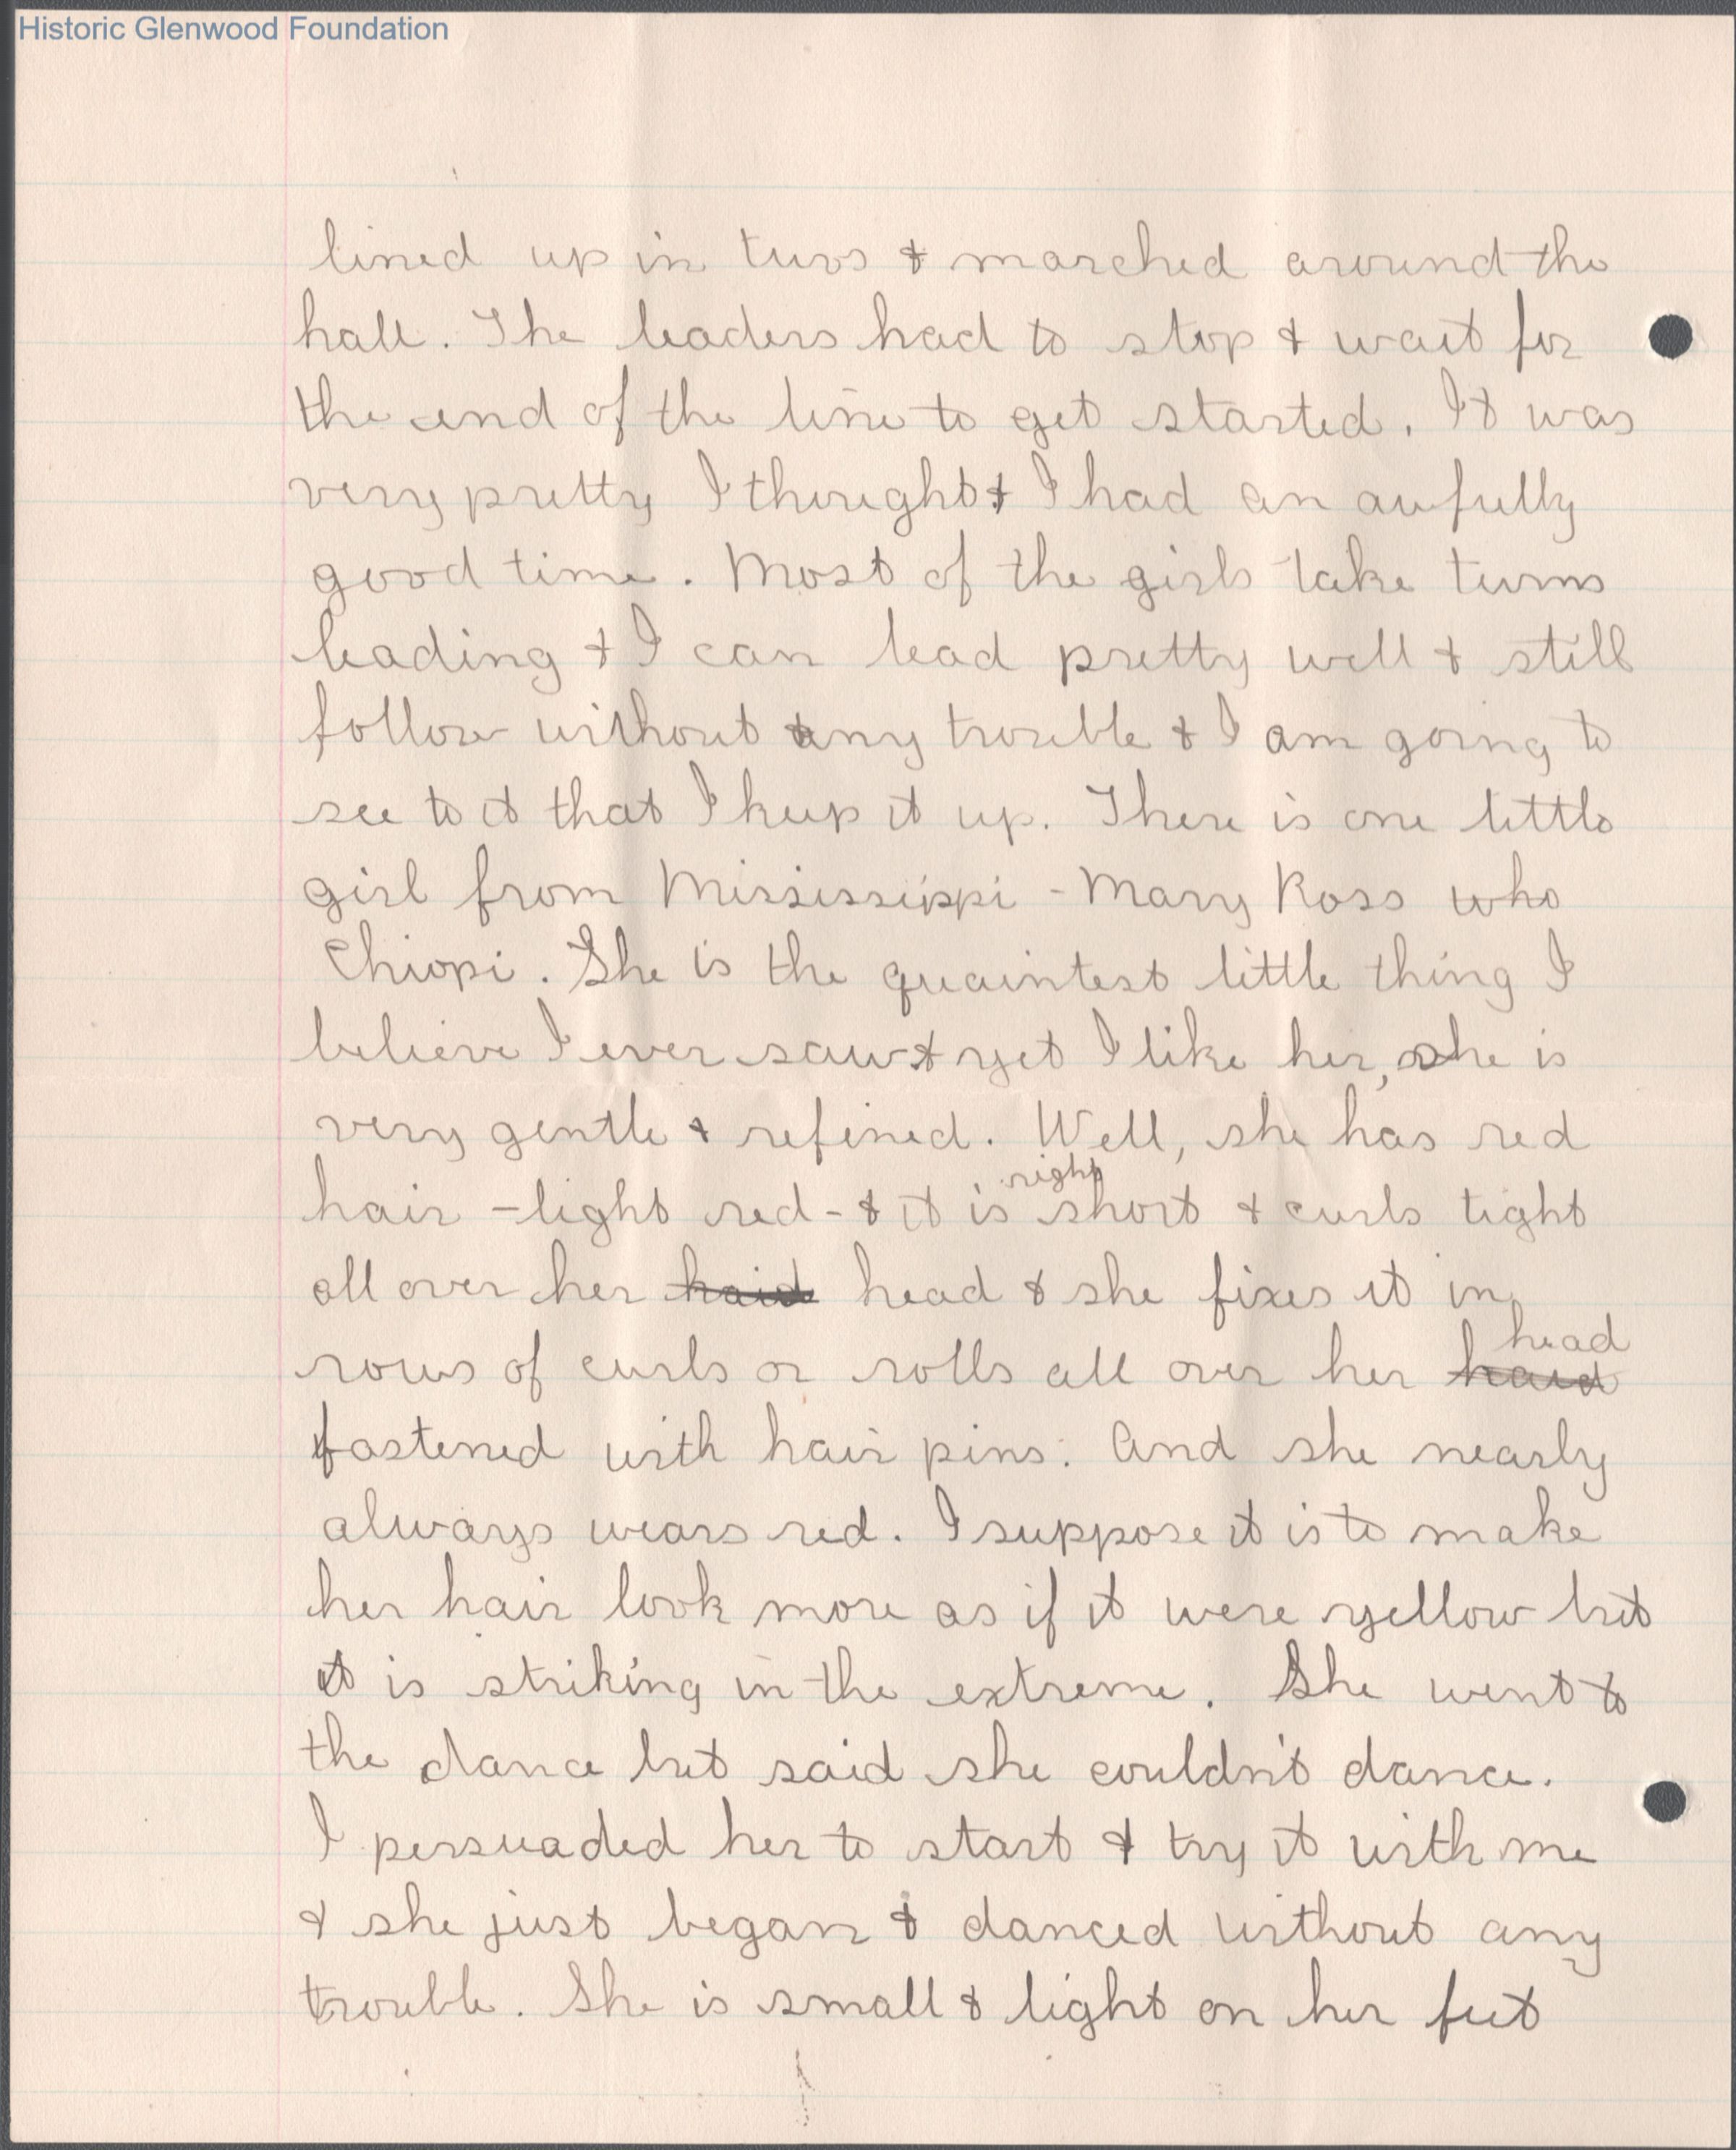 Historic Glenwood Foundation
lined up in twos & marched around the
hall. The leaders had to stop & wait for
the end of the line to get started. It was
very pretty I thought & I had an awfully
good time. Most of the girls take turns
leading & I can lead pretty well & still
follow without any trouble & I am going to
see to it that I keep it up. There is one little
girl from Mississippi - Mary Ross who
Chiopi. She is the quaintest little thing I
believe I ever saw & yet I like her, she is
very gentle & refined. Well, she has red
right
hair - light red - & it is short & curls tight
all over her haid head & she fixes it in
head
rows of curls or rolls all over her haid
fastened with hair pins. And she nearly
always wears red. I suppose it is to make
her hair look more as if it were yellow but
it is striking in the extreme. She went to
the dance but said she couldn't dance.
I persuaded her to start & try it with me
& she just began & danced without any
trouble. She is small & light on her feet